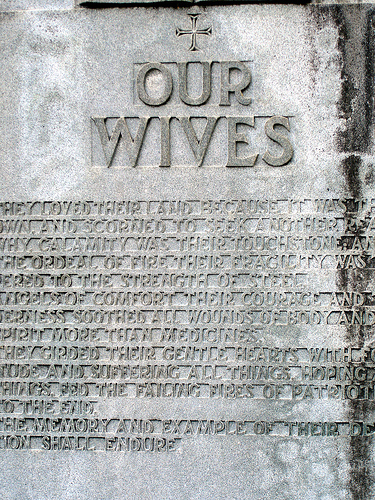 OUR
WIVES
THEY LOVED THEIR LAND BECAUSE IT WAS
OWN AND SCORNED TO SEEK ANOTHER
WHY CALAMITY WAS THEIR TOUCHSTONE AN
THE ORDEAL OF FIRE THEIR FRAGILITY WAS
ERED TO THE STRENGTH OF STEEL.
ANGELS OF COMFORT THEIR COURAGE AND
DERNESS SOOTHED ALL WOUNDS OF BODY AND
PIRIT MORE THAN MEDICINES.
THEY GIRDED THEIR GENTLE HEARTS WITH FO
TUDE AND SUFFERING ALL THINGS, HOPING
THINGS, FED THE FAILING FIRES OF PATRIOT
TO THE END.
THE MEMORY AND EXAMPLE OF THEIR DE
TION SHALL ENDURE